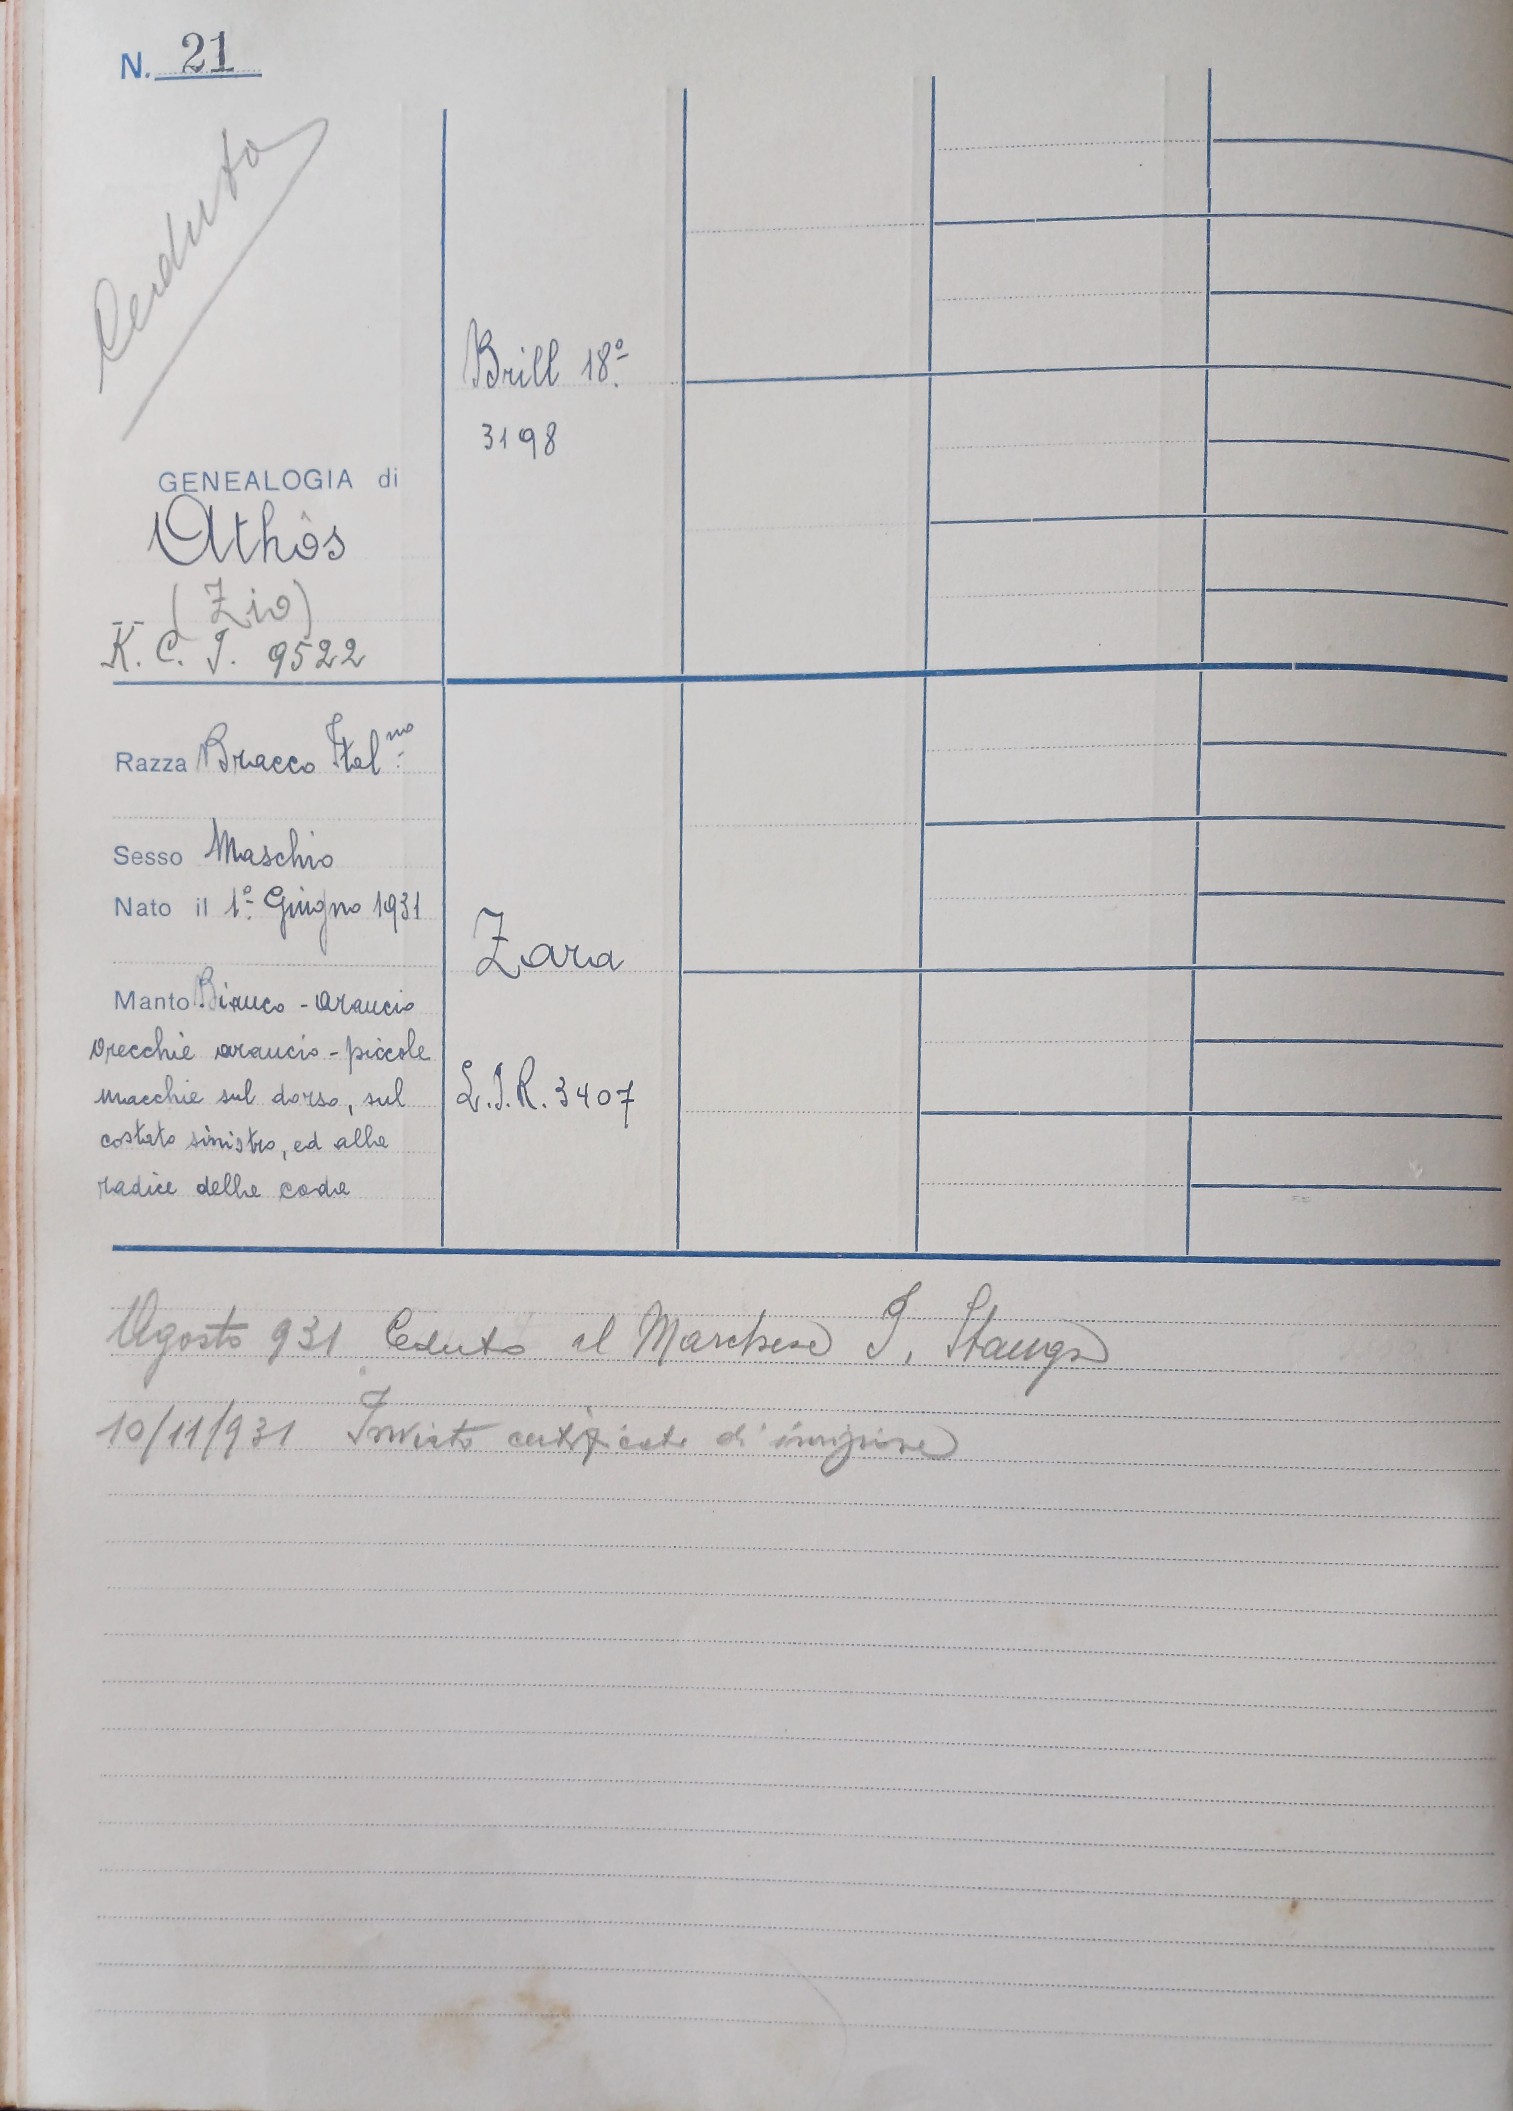 N. 21
Ceduto
Brill 18º
3198
GENEALOGIA di
Athôs
(Zio)
K. C. I. 9522
Razza Bracco Ital.no
Sesso Maschio
Nato il 1º Giugno 1931
Zara
Manto Bianco - arancio
orecchie arancio - piccole
macchie sul dorso, sul
L.I.R. 3407
costato sinistro, ed alla
radice della coda
Agosto 931 Ceduto al Marchese I. Stanga
10/11/931 Inviato certificato di iscrizione